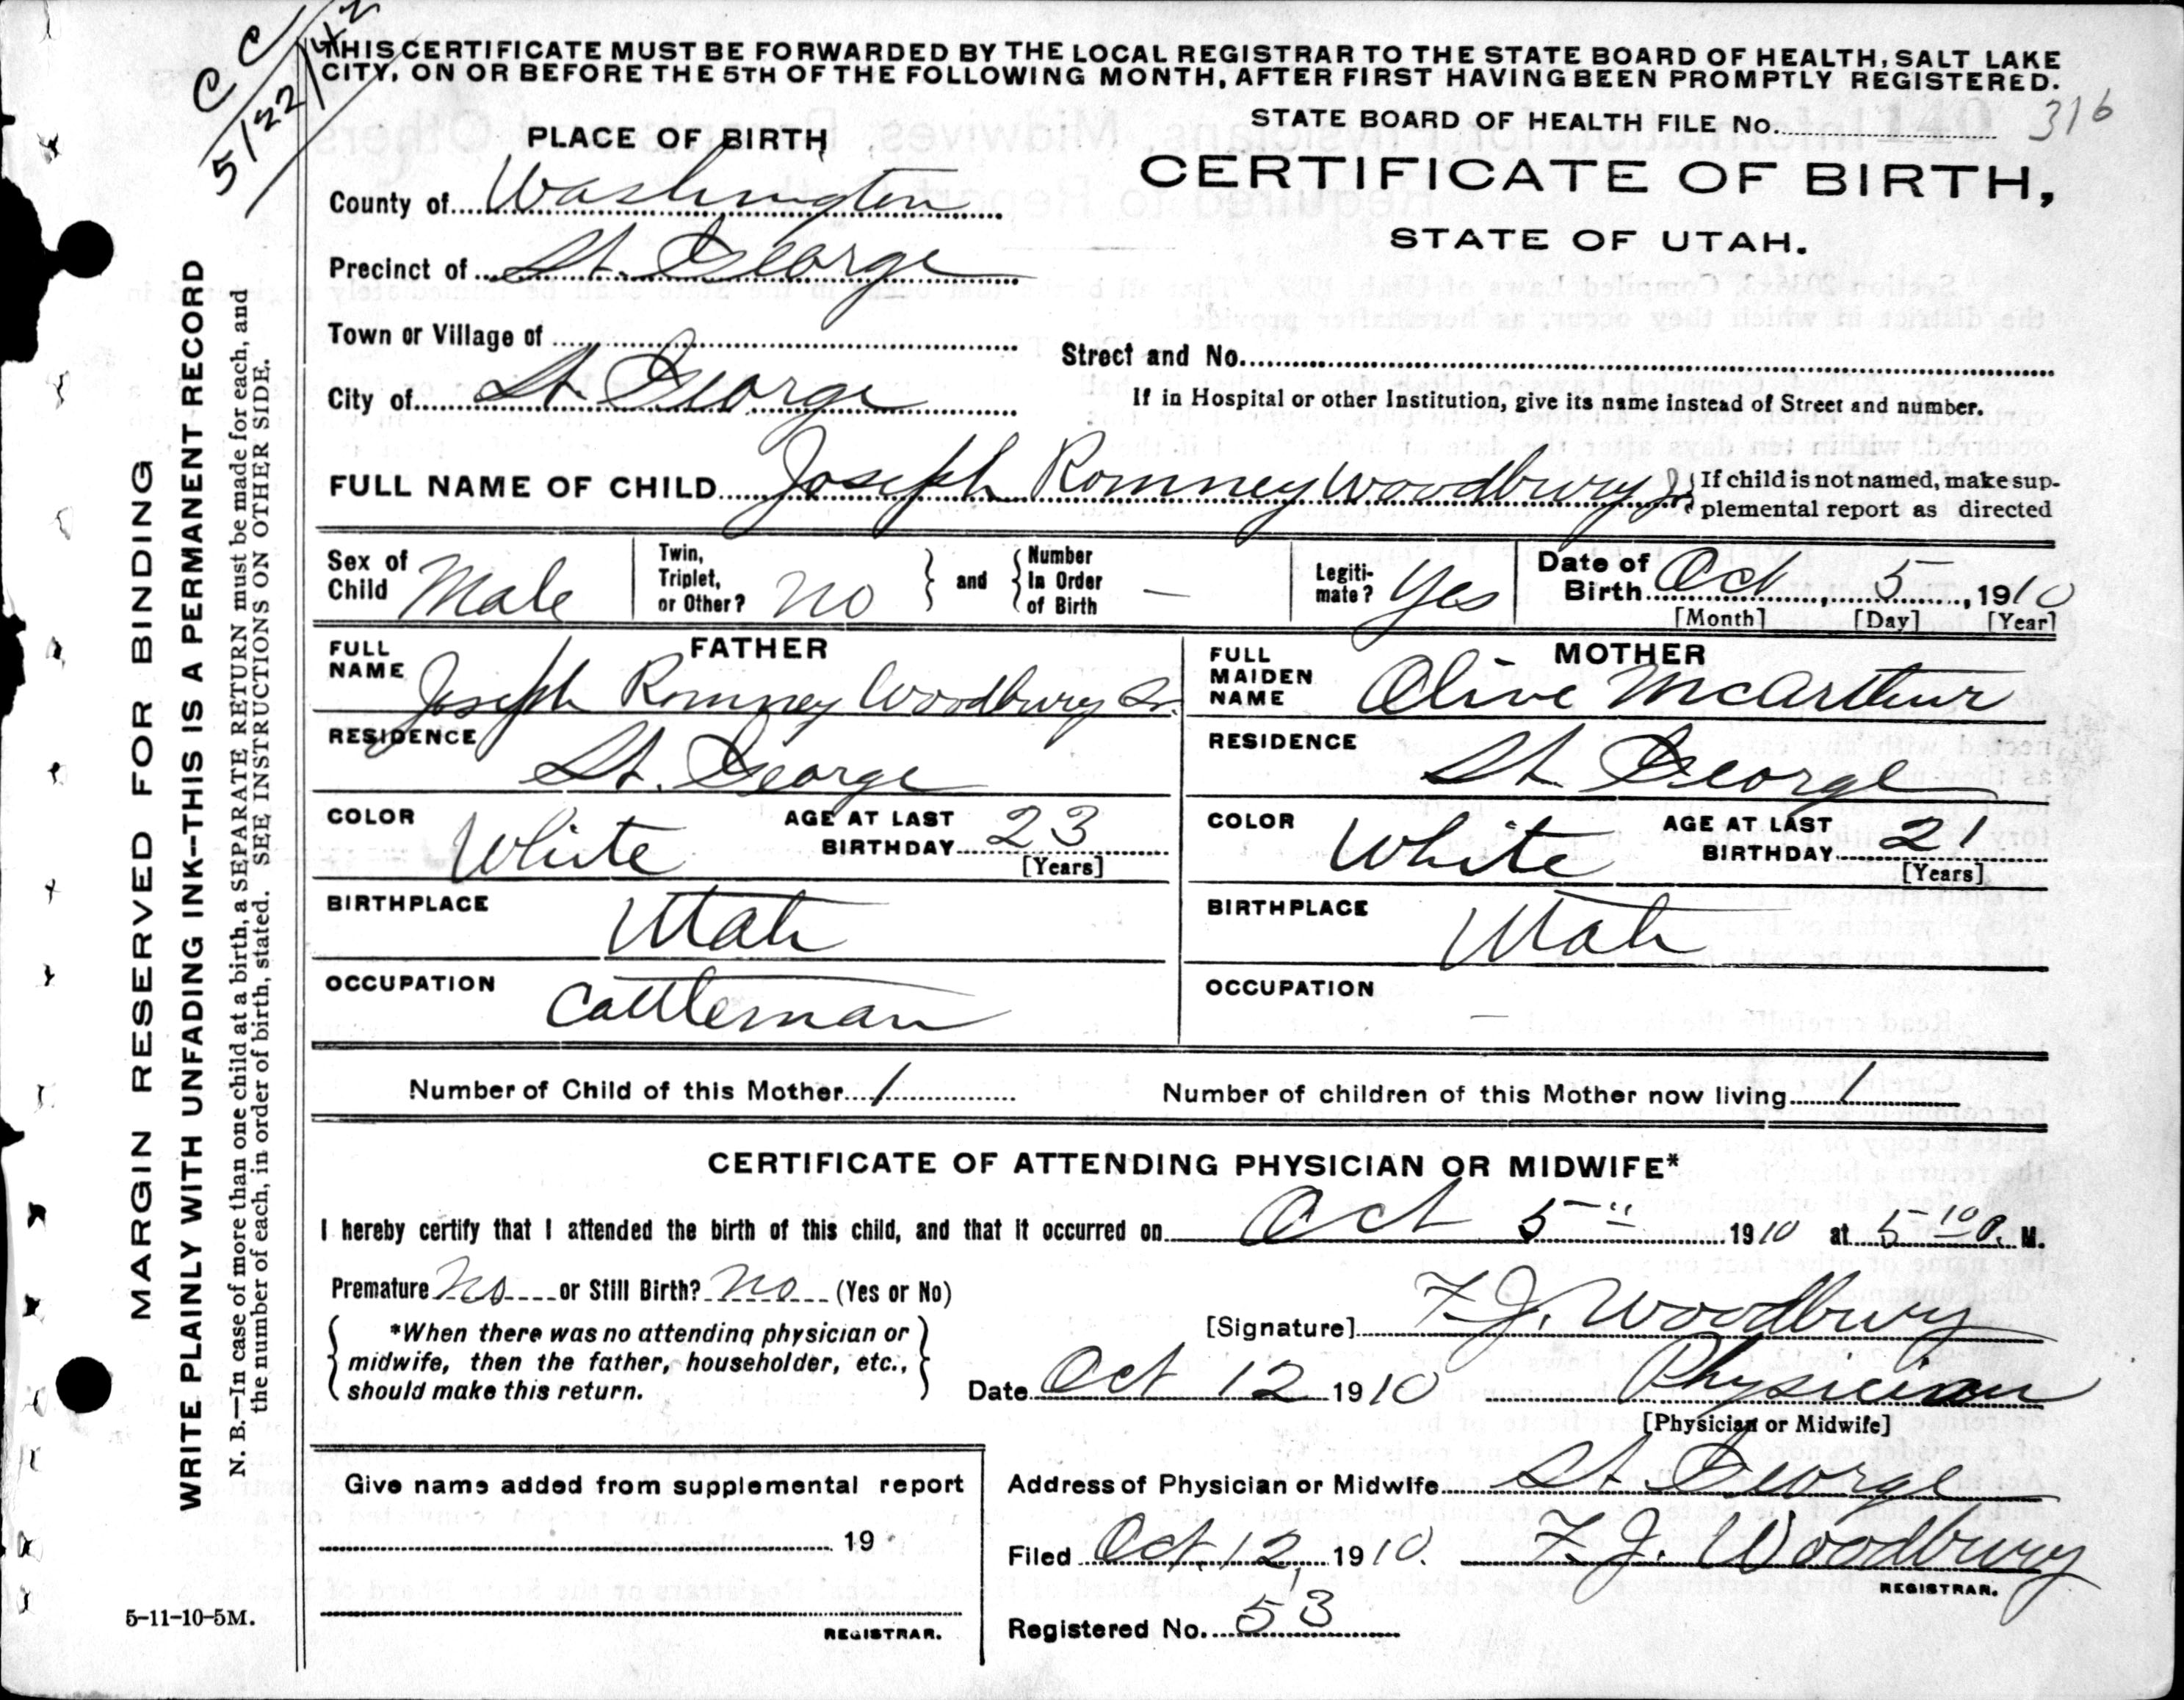 CC
5/22/42
THIS CERTIFICATE MUST BE FORWARDED BY THE LOCAL REGISTRAR TO THE STATE BOARD OF HEALTH, SALT LAKE
CITY, ON OR BEFORE THE 5TH OF THE FOLLOWING MONTH, AFTER FIRST HAVING BEEN PROMPTLY REGISTERED.
STATE BOARD OF HEALTH FILE No. 140 316
PLACE OF BIRTH
CERTIFICATE OF BIRTH,
STATE OF UTAH.
County of Washington
Precinct of St. George
Town or Village of
Street and No.
City of St George
If in Hospital or other Institution, give its name instead of Street and number.
FULL NAME OF CHILD Joseph Romney Woodbury Jr
If child is not named, make sup-
plemental report as directed
Sex of Child Male
Twin, Triplet, or Other? No
and
Number In Order of Birth —
Legiti-mate? Yes
Date of Birth Oct 5, 1910
[Month] [Day] [Year]
FATHER
FULL NAME Joseph Romney Woodbury Sr.
RESIDENCE St. George
COLOR White AGE AT LAST BIRTHDAY 23
[Years]
BIRTHPLACE Utah
OCCUPATION Cattleman
MOTHER
FULL MAIDEN NAME Olive McArthur
RESIDENCE St George
COLOR White AGE AT LAST BIRTHDAY 21
[Years]
BIRTHPLACE Utah
OCCUPATION —
Number of Child of this Mother 1 Number of children of this Mother now living 1
CERTIFICATE OF ATTENDING PHYSICIAN OR MIDWIFE*
I hereby certify that I attended the birth of this child, and that it occurred on Oct 5" 1910 at 5 10 P. M.
Premature No or Still Birth? No (Yes or No)
*When there was no attending physician or
midwife, then the father, householder, etc.,
should make this return.
[Signature] F. J. Woodbury
Date Oct 12 1910 Physician
[Physician or Midwife]
Give name added from supplemental report
19
REGISTRAR.
Address of Physician or Midwife St. George
Filed Oct. 12, 1910. F. J. Woodbury
REGISTRAR.
Registered No. 53
MARGIN RESERVED FOR BINDING
WRITE PLAINLY WITH UNFADING INK--THIS IS A PERMANENT RECORD
N. B.—In case of more than one child at a birth, a SEPARATE RETURN must be made for each, and
the number of each, in order of birth, stated. SEE INSTRUCTIONS ON OTHER SIDE.
5-11-10-5M.